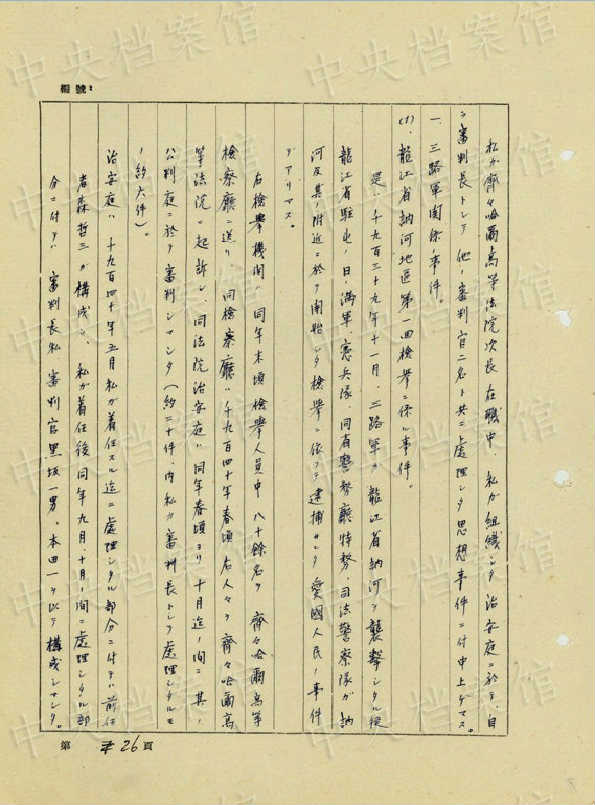 編號:
私ガ齊々哈爾高等法院次長在職中、私ガ組織シタ治安庭ニ於テ、自
ラ審判長トシテ他ノ審判官二名ト共ニ處理シタ思想事件ニ付申上ゲマス。
一、三路軍関係事件。
(1)、龍江省納河地區第一回檢擧ニ係ル事件。
是ハ千九百三十九年十一月、三路軍ガ龍江省納河ヲ襲撃シタル後
龍江省駐屯ノ日、満軍、憲兵隊、同省警務廳特務、司法警察隊ガ納
河及其ノ附近ニ於テ開始シタ檢擧ニ依ッテ逮捕サレタ愛國人民ノ事件
デアリマス。
右檢擧機関ハ同年末頃檢擧人員中八十餘名ヲ齊々哈爾高等
檢察廳ニ送リ、同檢察廳ハ千九百四十年春頃右人々ヲ齊々哈爾高
等法院ニ起訴シ、同法院治安庭ハ同年春頃ヨリ十月迄ノ間ニ其ノ
公判庭ニ於テ審判シマシタ(約二十件、内私ガ審判長トシテ處理シタルモ
ノ約六件)。
治安庭ハ千九百四十年五月私ガ着任スル迄ニ處理シタル部分ニ付テハ前任
者森哲三ガ構成シ、私ガ着任後同年九月、十月ノ間ニ處理シタル部
分ニ付テハ審判長私、審判官黒坂一男。本田一ヲ以テ構成シマシタ。
第 26 頁
中央档案馆